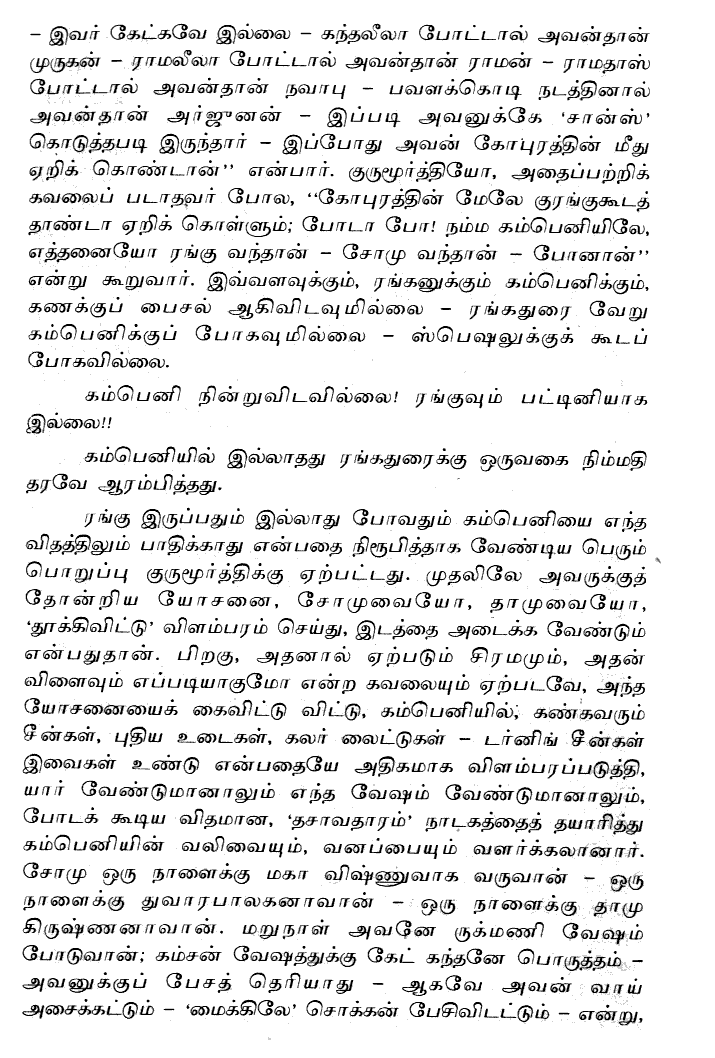 – இவர் கேட்கவே இல்லை – கந்தலீலா போட்டால் அவன்தான்
முருகன் – ராமலீலா போட்டால் அவன்தான் ராமன் – ராமதாஸ்
போட்டால் அவன்தான் நவாபு – பவளக்கொடி நடத்தினால்
அவன்தான் அர்ஜுனன் – இப்படி அவனுக்கே ‘சான்ஸ்’
கொடுத்தபடி இருந்தார் – இப்போது அவன் கோபுரத்தின் மீது
ஏறிக் கொண்டான்’’ என்பார். குருமூர்த்தியோ, அதைப்பற்றிக்
கவலைப் படாதவர் போல, ‘‘கோபுரத்தின் மேலே குரங்குகூடத்
தாண்டா ஏறிக் கொள்ளும்; போடா போ! நம்ம கம்பெனியிலே,
எத்தனையோ ரங்கு வந்தான் – சோமு வந்தான் – போனான்’’
என்று கூறுவார். இவ்வளவுக்கும், ரங்கனுக்கும் கம்பெனிக்கும்,
கணக்குப் பைசல் ஆகிவிடவுமில்லை – ரங்கதுரை வேறு
கம்பெனிக்குப் போகவுமில்லை – ஸ்பெஷலுக்குக் கூடப்
போகவில்லை.
கம்பெனி நின்றுவிடவில்லை! ரங்குவும் பட்டினியாக
இல்லை!!
கம்பெனியில் இல்லாதது ரங்கதுரைக்கு ஒருவகை நிம்மதி
தரவே ஆரம்பித்தது.
ரங்கு இருப்பதும் இல்லாது போவதும் கம்பெனியை எந்த
விதத்திலும் பாதிக்காது என்பதை நிரூபித்தாக வேண்டிய பெரும்
பொறுப்பு குருமூர்த்திக்கு ஏற்பட்டது. முதலிலே அவருக்குத்
தோன்றிய யோசனை, சோமுவையோ, தாமுவையோ,
‘தூக்கிவிட்டு’ விளம்பரம் செய்து, இடத்தை அடைக்க வேண்டும்
என்பதுதான். பிறகு, அதனால் ஏற்படும் சிரமமும், அதன்
விளைவும் எப்படியாகுமோ என்ற கவலையும் ஏற்படவே, அந்த
யோசனையைக் கைவிட்டு விட்டு, கம்பெனியில், கண்கவரும்
சீன்கள், புதிய உடைகள், கலர் லைட்டுகள் – டர்னிங் சீன்கள்
இவைகள் உண்டு என்பதையே அதிகமாக விளம்பரப்படுத்தி,
யார் வேண்டுமானாலும் எந்த வேஷம் வேண்டுமானாலும்,
போடக் கூடிய விதமான, ‘தசாவதாரம்’ நாடகத்தைத் தயாரித்து
கம்பெனியின் வலிவையும், வனப்பையும் வளர்க்கலானார்.
சோமு ஒரு நாளைக்கு மகா விஷ்ணுவாக வருவான் – ஒரு
நாளைக்கு துவாரபாலகனாவான் – ஒரு நாளைக்கு தாமு
கிருஷ்ணனாவான். மறுநாள் அவனே ருக்மணி வேஷம்
போடுவான்; கம்சன் வேஷத்துக்கு கேட் கந்தனே பொருத்தம் –
அவனுக்குப் பேசத் தெரியாது – ஆகவே அவன் வாய்
அசைக்கட்டும் – ‘மைக்கிலே’ சொக்கன் பேசிவிடட்டும் – என்று,